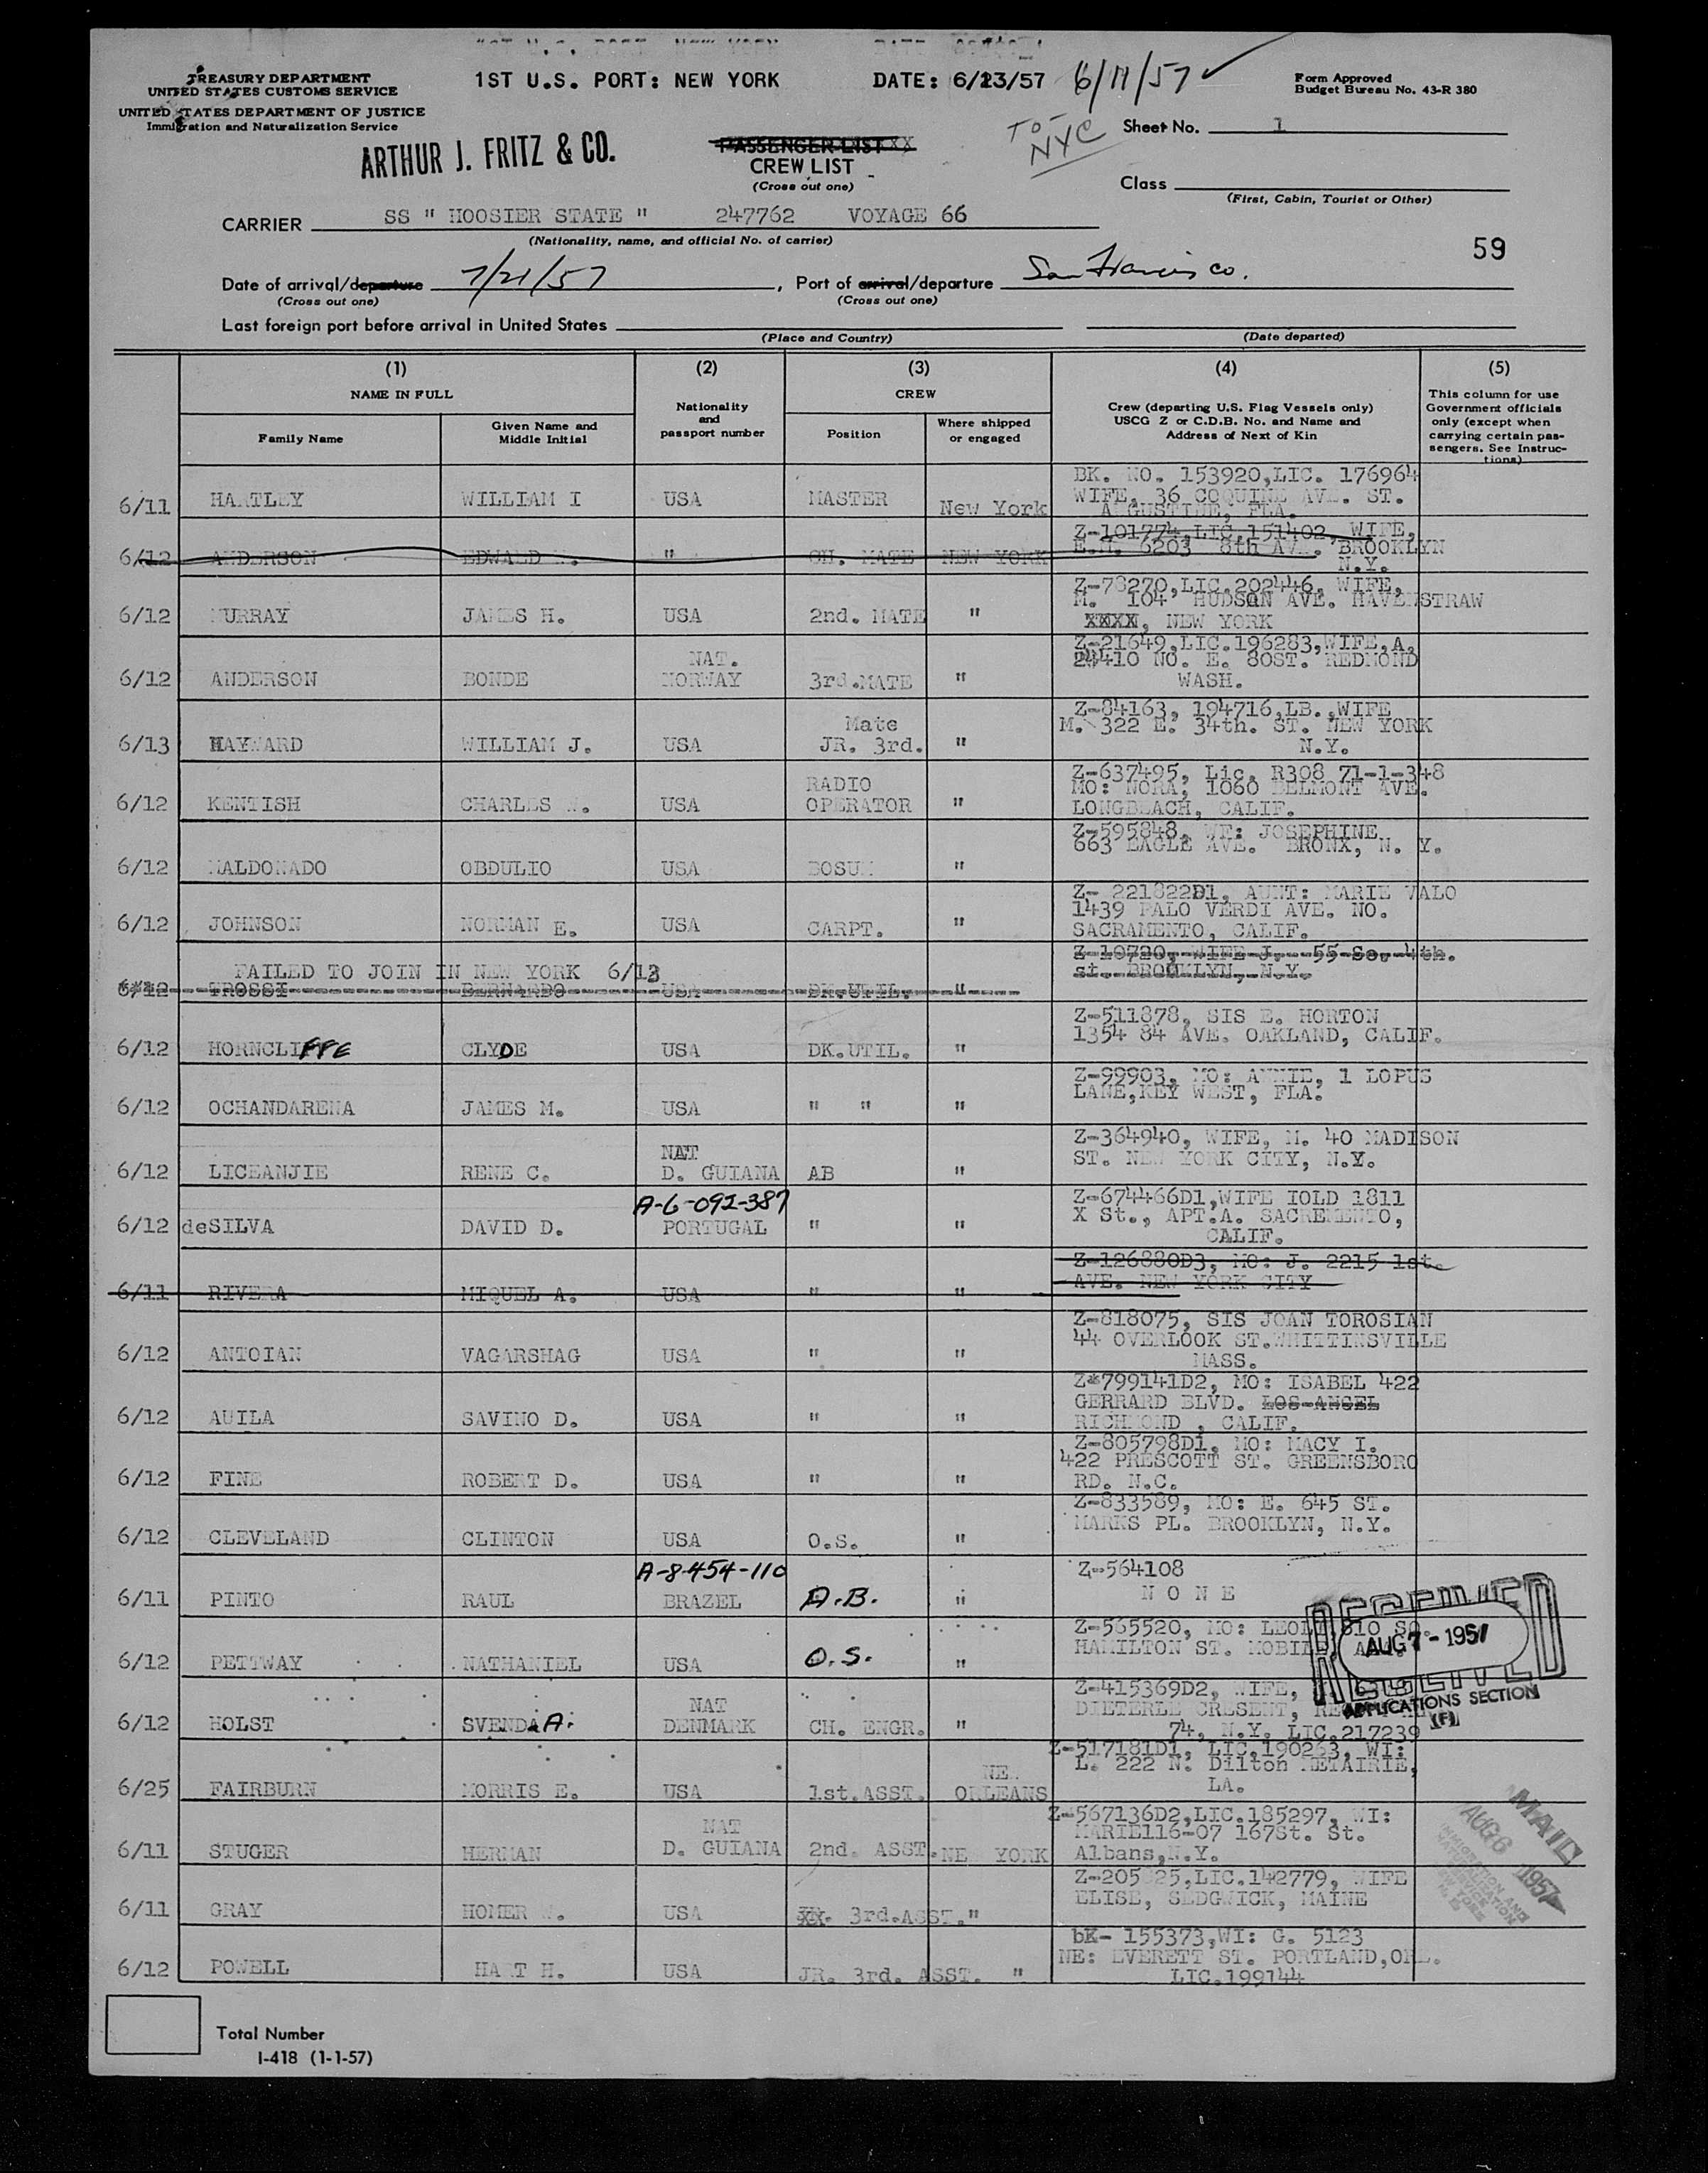 TREASURY DEPARTMENT
UNITED STATES CUSTOMS SERVICE
UNITED STATES DEPARTMENT OF JUSTICE
Immigration and Naturalization Service
1ST U.S. PORT: NEW YORK DATE: 6/13/57 6/11/57 ✓
TO- NYC
Form Approved
Budget Bureau No. 43-R 380
Sheet No. 1
ARTHUR J. FRITZ & CO.
PASSENGER LIST XX
CREW LIST
(Cross out one)
Class
(First, Cabin, Tourist or Other)
CARRIER SS " HOOSIER STATE " 247762 VOYAGE 66
(Nationality, name, and official No. of carrier)
59
Date of arrival/departure 7/21/57, Port of arrival/departure San Francisco.
(Cross out one) (Cross out one)
Last foreign port before arrival in United States
(Place and Country) (Date departed)
(1) (2) (3) (4) (5)
NAME IN FULL
Family Name
Given Name and Middle Initial
Nationality and passport number
CREW
Position
Where shipped or engaged
Crew (departing U.S. Flag Vessels only)
USCG Z or C.D.B. No. and Name and
Address of Next of Kin
This column for use
Government officials
only (except when
carrying certain pas-
sengers. See Instruc-
tions)
6/11 HARTLEY WILLIAM I USA MASTER New York BK. NO. 153920,LIC. 176964
WIFE. 36 COQUINE AVE. ST.
AUGUSTINE, FLA.
6/12 ANDERSON EDWALD " CH. MATE NEW YORK Z-101774,LIC,151402, WIFE,
E.M. 6203 8th AVE. BROOKLYN
N.Y.
6/12 MURRAY JAMES H. USA 2nd. MATE " Z-78270,LIC.202446, WIFE,
M. 104 HUDSON AVE. HAVENSTRAW
XXXX, NEW YORK
6/12 ANDERSON BONDE NAT. NORWAY 3rd.MATE " Z-21649,LIC.196283,WIFE,A.
24410 NO. E. 80ST. REDMOND
WASH.
6/13 HAYWARD WILLIAM J. USA Mate JR. 3rd. " Z-84163, 194716,LB.,WIFE
M. 322 E. 34th. ST. NEW YORK
N.Y.
6/12 KENTISH CHARLES W. USA RADIO OPERATOR " Z-637495, Lic. R308 71-1-348
MO: NORA, 1060 BELMONT AVE.
LONGBEACH, CALIF.
6/12 MALDONADO OBDULIO USA BOSUN " Z-595848, WE: JOSEPHINE
663 EAGLE AVE. BRONX, N. Y.
6/12 JOHNSON NORMAN E. USA CARPT. " Z- 221822D1, AUNT: MARIE VALO
1439 PALO VERDI AVE. NO.
SACRAMENTO, CALIF.
FAILED TO JOIN IN NEW YORK 6/13
6/12 TROSSI BERNARDO USA DK.UTIL. " Z-10720, WIFE J. 55 So. 4th.
st. BROOKLYN, N.Y.
6/12 HORNCLIFFE CLYDE USA DK.UTIL. " Z-511878, SIS E. HORTON
1354 84 AVE. OAKLAND, CALIF.
6/12 OCHANDARENA JAMES M. USA " " " Z-99903, MO: ANNIE, 1 LOPUS
LANE,KEY WEST, FLA.
6/12 LICEANJIE RENE C. NAT D. GUIANA AB " Z-364940, WIFE, M. 40 MADISON
ST. NEW YORK CITY, N.Y.
6/12 deSILVA DAVID D. A-6-092-387 PORTUGAL " " Z-674466D1,WIFE IOLD 1811
X St., APT.A. SACREMENTO,
CALIF.
6/11 RIVERA MIQUEL A. USA " " Z-126880D3, MO: J. 2215 1st.
AVE. NEW YORK CITY
6/12 ANTOIAN VAGARSHAG USA " " Z-818075, SIS JOAN TOROSIAN
44 OVERLOOK ST.WHITTINSVILLE
MASS.
6/12 AUILA SAVINO D. USA " " Z*799141D2, MO: ISABEL 422
GERRARD BLVD. LOS ANGEL
RICHMOND , CALIF.
6/12 FINE ROBERT D. USA " " Z-805798D1, MO: MACY I.
422 PRESCOTT ST. GREENSBORO
RD. N.C.
6/12 CLEVELAND CLINTON USA O.S. " Z-833589, MO: E. 645 ST.
MARKS PL. BROOKLYN, N.Y.
6/11 PINTO RAUL A-8-454-110 BRAZEL A.B. " Z-564108
N O N E
6/12 PETTWAY NATHANIEL USA O.S. " Z-565520, MO: 810 SO
HAMILTON ST.
RECEIVED
AUG 7 - 1957
APPLICATIONS SECTION
(F)
6/12 HOLST SVEND A. NAT DENMARK CH. ENGR. " Z-415369D2, WIFE,
DIETERLE CRESENT,
74, N.Y. LIC.217239
6/25 FAIRBURN MORRIS E. USA 1st.ASST. NEW ORLEANS Z-517181D1, LIC.190263, WI:
L. 222 N. Dilton METAIRIE,
LA.
6/11 STUGER HERMAN NAT D. GUIANA 2nd. ASST. NEW YORK Z-567136D2,LIC.185297, WI:
MARIE116-07 167St. St.
Albans,N.Y.
MAIL
AUG 6 1957
IMMIGRATION AND
NATURALIZATION
SERVICE
6/11 GRAY HOMER W. USA 3rd.ASST." LIC.142779, WIFE
ELISE, SEDGWICK, MAINE
6/12 POWELL HART H. USA JR. 3rd. ASST. " bK- 155373,WI: G. 5123
NE: EVERETT ST. PORTLAND,ORE.
LIC.199144
Total Number
I-418 (1-1-57)